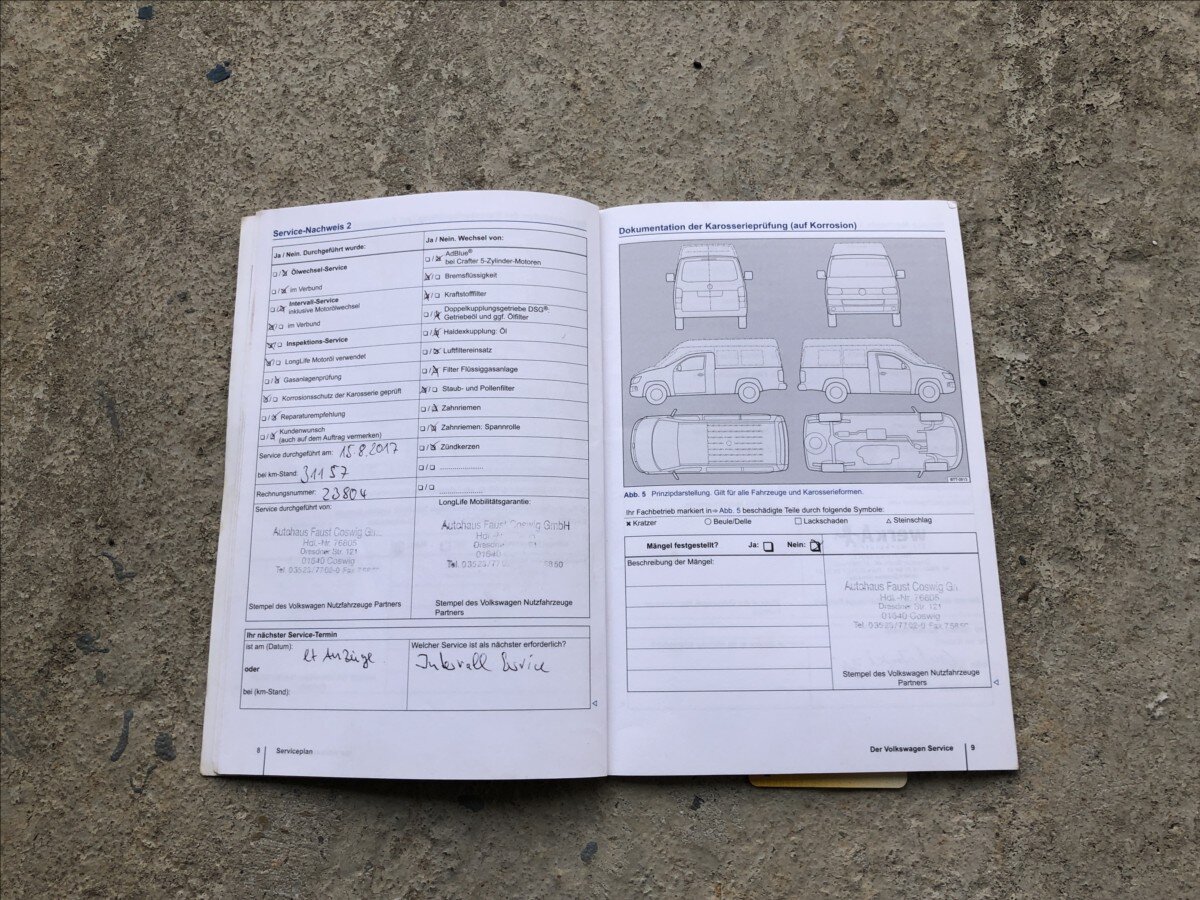 Service-Nachweis 2
Ja / Nein. Durchgeführt wurde:
Ölwechsel-Service
im Verbund
Intervall-Service
inklusive Motorölwechsel
im Verbund
Inspektions-Service
LongLife Motoröl verwendet
Gasanlagenprüfung
Korrosionsschutz der Karosserie geprüft
Reparaturempfehlung
Kundenwunsch
(auch auf dem Auftrag vermerken)
Service durchgeführt am: 15.8.2017
bei km-Stand: 31157
Rechnungsnummer: 23804
Service durchgeführt von:
Autohaus Faust Coswig G
Hdl.-Nr. 76805
Dresdner Str. 121
01640 Coswig
Tel. 03523/7702-0 Fax
Stempel des Volkswagen Nutzfahrzeuge Partners
Ja / Nein. Wechsel von:
AdBlue®
bei Crafter 5-Zylinder-Motoren
Bremsflüssigkeit
Kraftstofffilter
Doppelkupplungsgetriebe DSG®:
Getriebeöl und ggf. Ölfilter
Haldexkupplung: Öl
Luftfiltereinsatz
Filter Flüssiggasanlage
Staub- und Pollenfilter
Zahnriemen
Zahnriemen: Spannrolle
Zündkerzen
LongLife Mobilitätsgarantie:
Autohaus Faust Coswig GmbH
Hdl.-Nr.
01640
Tel. 03523/7702-0
Stempel des Volkswagen Nutzfahrzeuge
Partners
Ihr nächster Service-Termin
ist am (Datum): lt Anzeige
oder
bei (km-Stand):
Welcher Service ist als nächster erforderlich?
Intervall Service
8 Serviceplan
Dokumentation der Karosserieprüfung (auf Korrosion)
Abb. 5 Prinzipdarstellung. Gilt für alle Fahrzeuge und Karosserieformen.
Ihr Fachbetrieb markiert in ⇒ Abb. 5 beschädigte Teile durch folgende Symbole:
× Kratzer ○ Beule/Delle □ Lackschaden △ Steinschlag
Mängel festgestellt? Ja: Nein:
Beschreibung der Mängel:
Autohaus Faust Coswig G
Hdl.-Nr. 76805
Dresdner Str. 121
01640 Coswig
Tel. 03523/7702-0 Fax
Stempel des Volkswagen Nutzfahrzeuge
Partners
Der Volkswagen Service 9